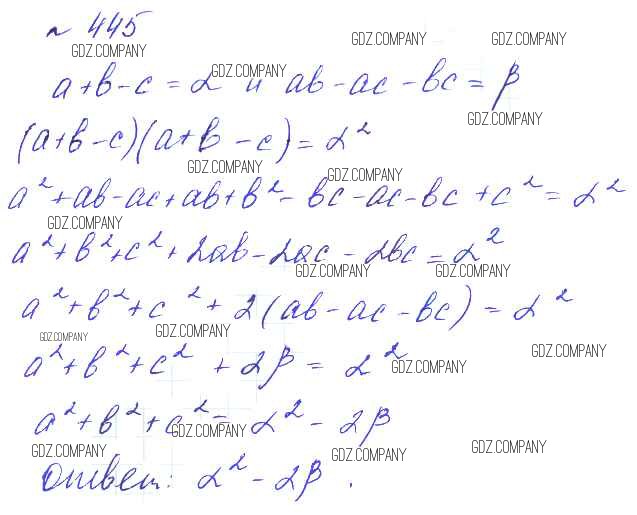 № 445
GDZ.COMPANY GDZ.COMPANY GDZ.COMPANY
a+b-c = α и ab-ac-bc = β
GDZ.COMPANY
GDZ.COMPANY
(a+b-c)(a+b-c) = α²
GDZ.COMPANY GDZ.COMPANY
a²+ab-ac+ab+b²-bc-ac-bc+c² = α²
GDZ.COMPANY
a²+b²+c²+2ab-2ac-2bc = α²
GDZ.COMPANY GDZ.COMPANY
a²+b²+c²+2(ab-ac-bc) = α²
GDZ.COMPANY GDZ.COMPANY
a²+b²+c²+2β = α²
GDZ.COMPANY GDZ.COMPANY
a²+b²+c² = α²-2β
GDZ.COMPANY
GDZ.COMPANY GDZ.COMPANY GDZ.COMPANY
Ответ: α²-2β.